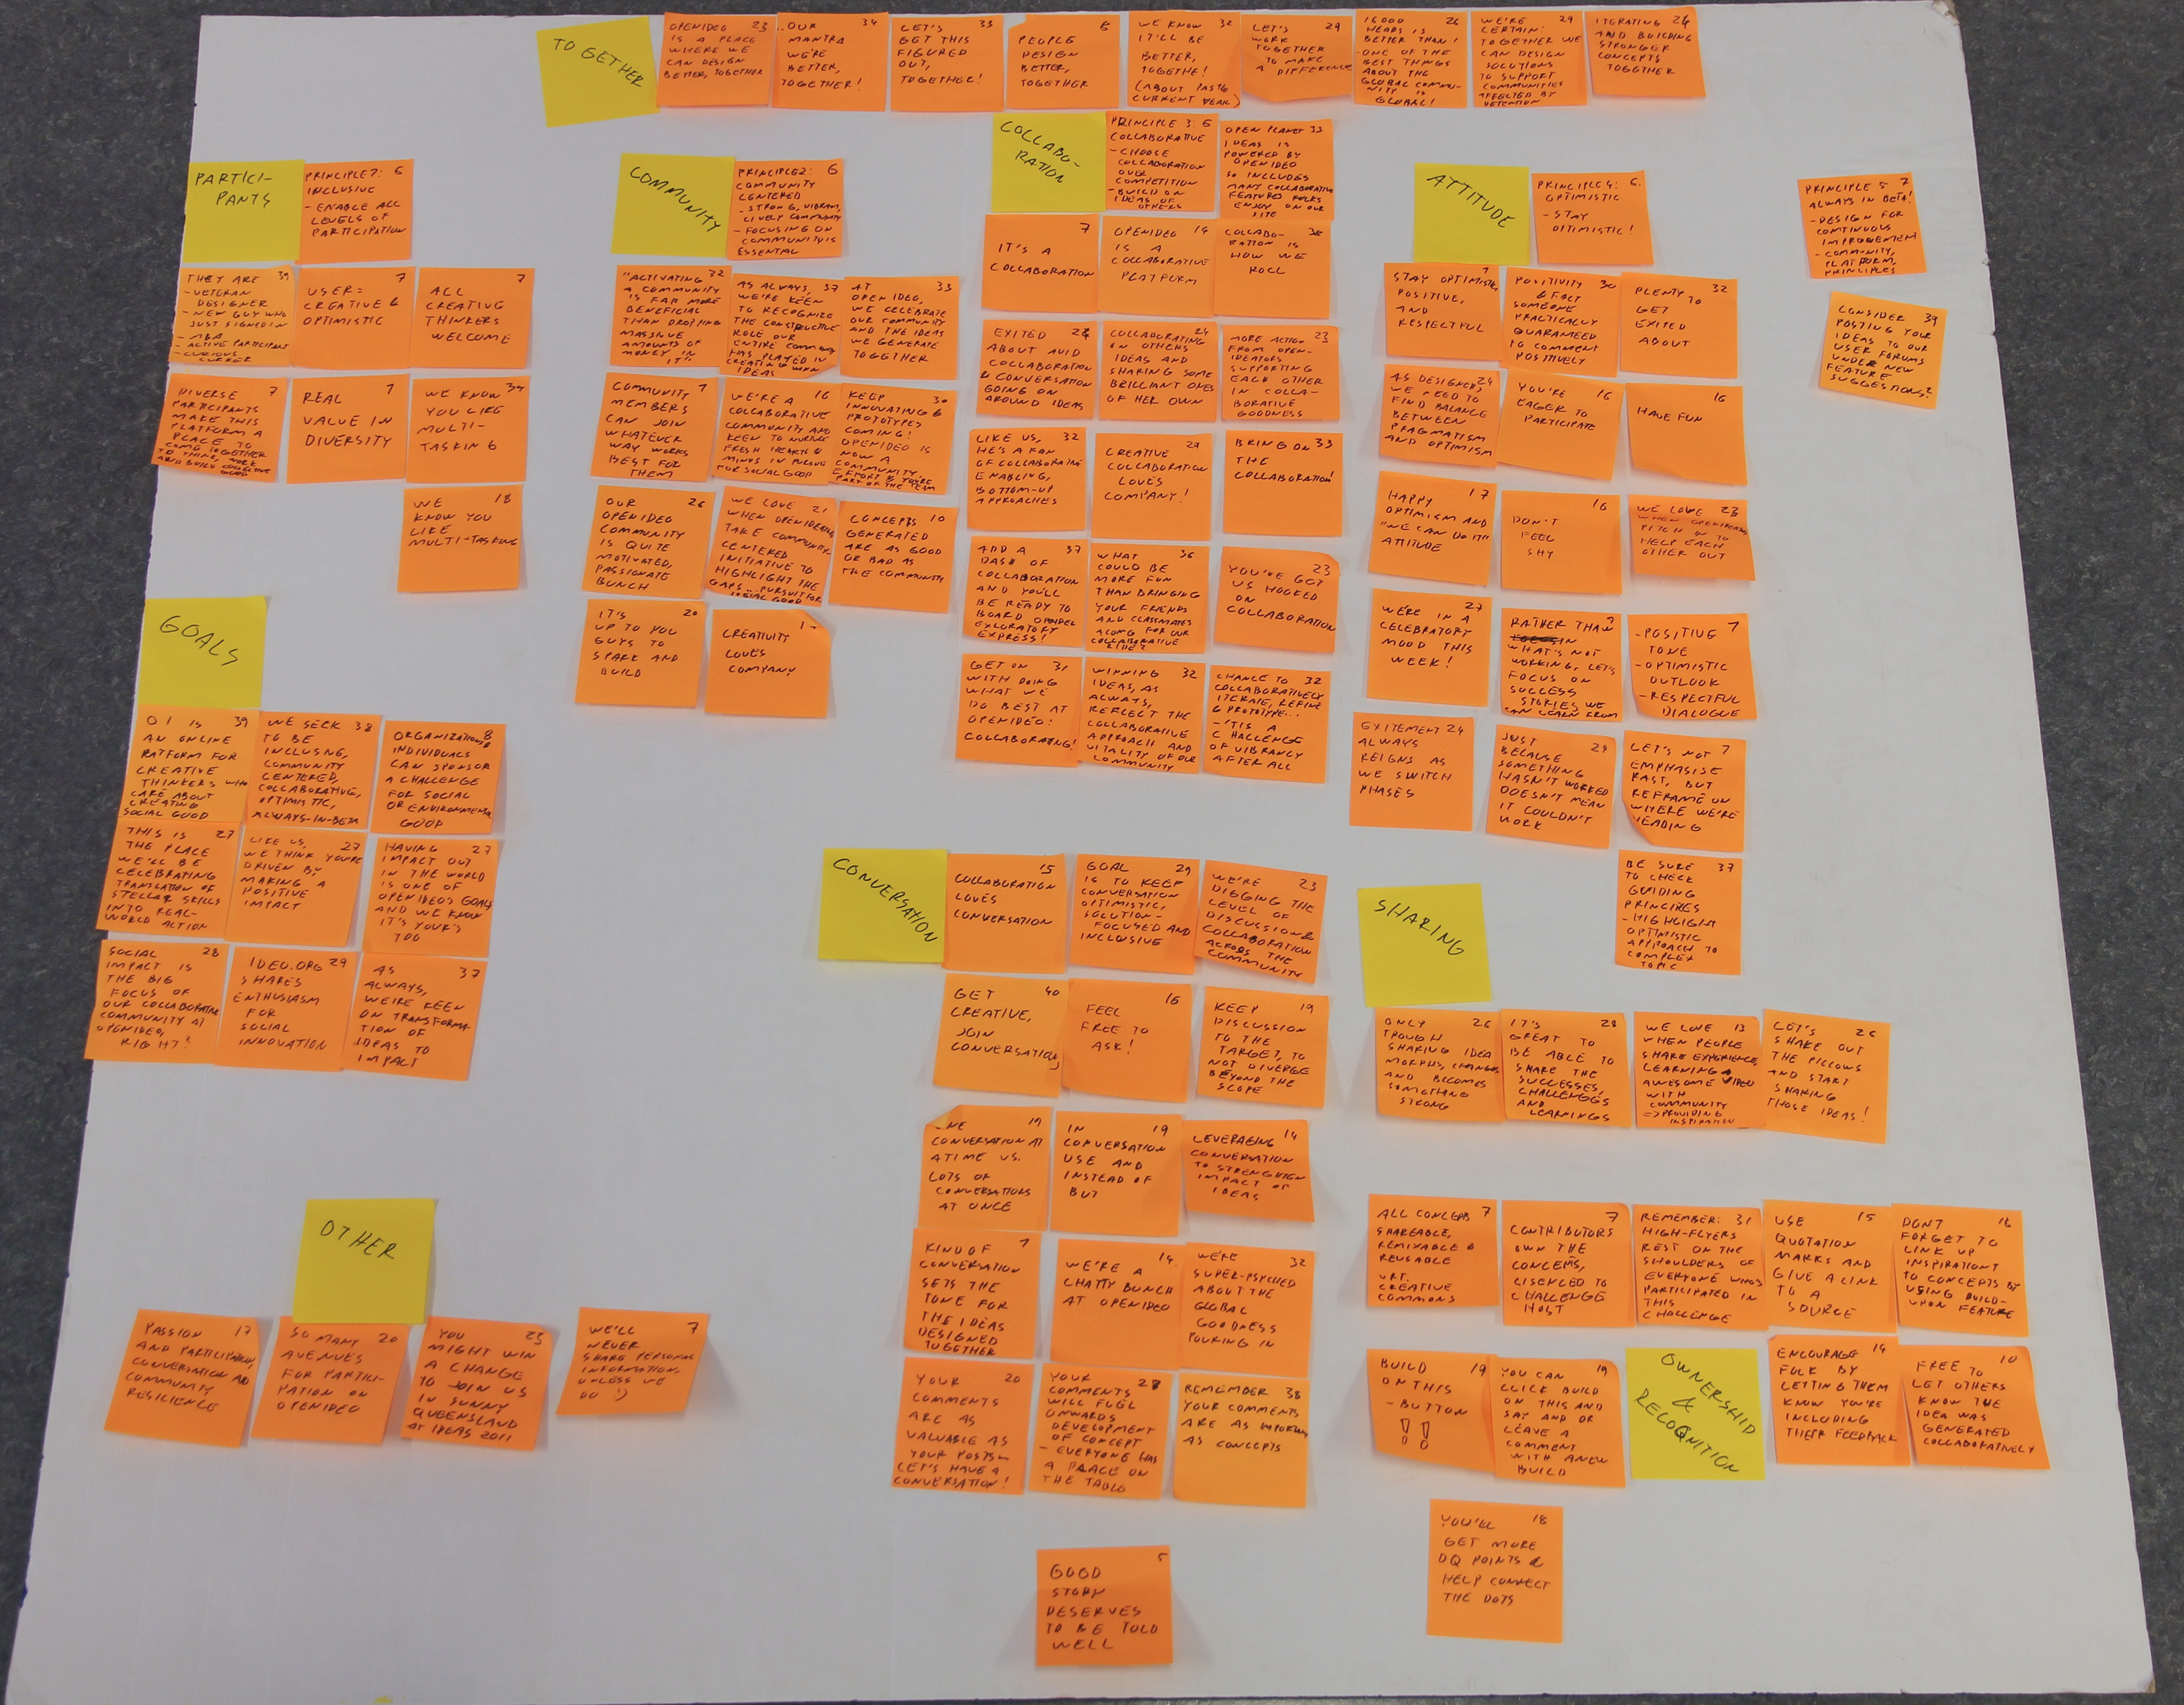 TOGETHER
OPENIDEO 23
IS A PLACE
WHERE WE
CAN DESIGN
BETTER, TOGETHER
OUR 34
MANTRA
WE'RE
BETTER,
TOGETHER!
LET'S 33
GET THIS
FIGURED
OUT,
TOGETHER!
6
PEOPLE
DESIGN
BETTER,
TOGETHER
WE KNOW 32
IT'LL BE
BETTER,
TOGETHE!
(ABOUT PAST &
CURRENT YEAR)
LET'S 29
WORK
TOGETHER
TO MAKE
A DIFFERENCE
16000 26
HEADS IS
BETTER THAN 1
- ONE OF THE
BEST THINGS
ABOUT THE
GLOBAL COMMU-
NITY IS
GLOBAL!
WE'RE 29
CERTAIN
TOGETHER WE
CAN DESIGN
SOLUTIONS
TO SUPPORT
COMMUNITIES
AFFECTED BY
DETENTION
ITERATING 24
AND BUILDING
STRONGER
CONCEPTS
TOGETHER
PARTICI-
PANTS
PRINCIPLE 7: 6
INCLUSIVE
- ENABLE ALL
LEVELS OF
PARTICIPATION
THEY ARE 39
- VETERAN
DESIGNER
- NEW GUY WHO
JUST SIGNED IN
- MBA
- ACTIVE PARTICIPANT
- CURIOUS
LURKER
7
USER=
CREATIVE &
OPTIMISTIC
7
ALL
CREATIVE
THINKERS
WELCOME
DIVERSE 7
PARTICIPANTS
MAKE THIS
PLATFORM A
PLACE TO
COME TOGETHER
TO THINK, WORK
AND BUILD COLLECTIVE
GOOD
7
REAL
VALUE IN
DIVERSITY
WE KNOW 34
YOU LIKE
MULTI-
TASKING
WE 18
KNOW YOU
LIKE
MULTI-TASKING
COMMUNITY
PRINCIPLE 2: 6
COMMUNITY
CENTERED
- STRONG, VIBRANT,
LIVELY COMMUNITY
- FOCUSING ON
COMMUNITY IS
ESSENTAL
"ACTIVATING 32
A COMMUNITY
IS FAR MORE
BENEFICIAL
THAN DROPPING
MASSIVE
AMOUNTS OF
MONEY IN
IT"
AS ALWAYS, 37
WE'RE KEEN
TO RECOGNIZE
THE CONSTRUCTIVE
ROLE OUR
ENTIRE COMMUNITY
HAS PLAYED IN
CREATING WHN
IDEAS
AT 33
OPEN IDEO,
WE CELEBRATE
OUR COMMUNITY
AND THE IDEAS
WE GENERATE
TOGETHER
COMMUNITY 7
MEMBERS
CAN JOIN
WHATEVER
WAY WORKS
BEST FOR
THEM
WE'RE A 16
COLLABORATIVE
COMMUNITY AND
KEEN TO NURTURE
FRESH HEARTS &
MINDS IN PURSUIT
FOR SOCIAL GOOD
KEEP 30
INNOVATING &
PROTOTYPES
COMING!
OPENIDEO IS
NOW A
COMMUNITY
EFFORT & YOU'RE
PART OF THE TEAM
OUR 26
OPENIDEO
COMMUNITY
IS QUITE
MOTIVATED,
PASSIONATE
BUNCH
WE LOVE 21
WHEN OPENIDEATORS
TAKE COMMUNITY
CENTERED
INITIATIVE TO
HIGHLIGHT THE
GAPS... PURSUIT FOR
SOCIAL GOOD
CONCEPTS 10
GENERATED
ARE AS GOOD
OR BAD AS
THE COMMUNITY
IT'S 20
UP TO YOU
GUYS TO
SPARK AND
BUILD
CREATIVITY
LOVES
COMPANY
COLLABO-
RATION
PRINCIPLE 3: 6
COLLABORATIVE
- CHOOSE
COLLABORATION
OVER
COMPETITION
- BUILD ON
IDEAS OF
OTHERS
OPEN PLANET 33
IDEAS IS
POWERED BY
OPENIDEO
SO INCLUDES
MANY COLLABORATIVE
FEATURES FOLKS
ENJOY ON OUR
SITE
7
IT'S A
COLLABORATION
OPENIDEO 14
IS A
COLLABORATIVE
PLATFORM
COLLABO- 38
RATION IS
HOW WE
ROLL
EXITED 24
ABOUT AVID
COLLABORATION
& CONVERSATION
GOING ON
AROUND IDEAS
COLLABORATING 24
ON OTHERS
IDEAS AND
SHARING SOME
BRILLIANT ONES
OF HER OWN
MORE ACTION 23
FROM OPEN-
IDEATORS
SUPPORTING
EACH OTHER
IN COLLA-
BORATIVE
GOODNESS
LIKE US, 32
HE'S A FAN
OF COLLABORATIVE
ENABLING,
BOTTOM-UP
APPROACHES
29
CREATIVE
COLLABORATION
LOVES
COMPANY!
BRING ON 33
THE
COLLABORATION!
ADD A 37
DASH OF
COLLABORATION
AND YOU'LL
BE READY TO
BOARD OPENIDEO
EXPLORATORY
EXPRESS!
WHAT 36
COULD BE
MORE FUN
THAN BRINGING
YOUR FRIENDS
AND CLASSMATES
ALONG FOR OUR
COLLABORATIVE
RIDE?
23
YOU'VE GOT
US HOOKED
ON
COLLABORATION
GET ON 31
WITH DOING
WHAT WE
DO BEST AT
OPENIDEO:
COLLABORATING!
WINNING 32
IDEAS, AS
ALWAYS,
REFLECT THE
COLLABORATIVE
APPROACH AND
VITALITY OF OUR
COMMUNITY
CHANCE TO 32
COLLABORATIVELY
ITERATE, REFINE
& PROTOTYPE...
- 'TIS A
CHALLENGE
OF VIBRANCY
AFTER ALL
ATTITUDE
PRINCIPLE 4: 6
OPTIMISTIC
- STAY
OPTIMISTIC!
STAY OPTIMISTIC, 7
POSITIVE,
AND
RESPECTFUL
POSITIVITY 30
& FACT
SOMEONE
PRACTICALLY
QUARANTEED
TO COMMENT
POSITIVELY
32
PLENTY TO
GET
EXITED
ABOUT
AS DESIGNERS 24
WE NEED TO
FIND BALANCE
BETWEEN
PRAGMATISM
AND OPTIMISM
YOU'RE 16
EAGER TO
PARTICIPATE
16
HAVE FUN
HAPPY 17
OPTIMISM AND
"WE CAN DO IT"
ATTITUDE
16
DON'T
FEEL
SHY
WE LOVE 23
WHEN OPENIDEATORS
PITCH IN TO
HELP EACH
OTHER OUT
WE'RE IN A 27
CELEBRATORY
MOOD THIS
WEEK!
RATHER THAN 7
IN
WHAT'S NOT
WORKING, LET'S
FOCUS ON
SUCCESS
STORIES WE
CAN LEARN FROM
- POSITIVE 7
TONE
- OPTIMISTIC
OUTLOOK
- RESPECTFUL
DIALOGUE
EXITEMENT 24
ALWAYS
REIGNS AS
WE SWITCH
PHASES
JUST 24
BECAUSE
SOMETHING
HASN'T WORKED
DOESN'T MEAN
IT COULDN'T
WORK
LET'S NOT 7
EMPHASISE
PAST, BUT
REFRAME ON
WHERE WE'RE
HEADING
BE SURE 37
TO CHECK
GUIDING
PRINCIPLES
- HIGHLIGHT
OPTIMISTIC
APPROACH TO
COMPLEX
TOPIC
PRINCIPLE 5 7
ALWAYS IN BETA!
- DESIGN FOR
CONTINUOUS
IMPROVEMENT
- COMMUNITY,
PLATFORM,
PRINCIPLES
CONSIDER 39
POSTING YOUR
IDEAS TO OUR
USER FORUMS
UNDER NEW
FEATURE
SUGGESTIONS?
GOALS
OI IS 39
AN ONLINE
PLATFORM FOR
CREATIVE
THINKERS WHO
CARE ABOUT
CREATING
SOCIAL GOOD
WE SEEK 38
TO BE
INCLUSIVE,
COMMUNITY
CENTERED,
COLLABORATIVE,
OPTIMISTIC,
ALWAYS-IN-BETA
ORGANIZATIONS & 8
INDIVIDUALS
CAN SPONSOR
A CHALLENGE
FOR SOCIAL
OR ENVIRONMENTAL
GOOD
THIS IS 27
THE PLACE
WE'LL BE
CELEBRATING
TRANSLATION OF
STELLAR SKILLS
INTO REAL-
WORLD ACTION
LIKE US, 27
WE THINK YOU'RE
DRIVEN BY
MAKING A
POSITIVE
IMPACT
HAVING 27
IMPACT OUT
IN THE WORLD
IS ONE OF
OPENIDEO'S GOALS
AND WE KNOW
IT'S YOUR'S
TOO
SOCIAL 28
IMPACT IS
THE BIG
FOCUS OF
OUR COLLABORATIVE
COMMUNITY AT
OPENIDEO,
RIGHT?
IDEO.ORG 29
SHARES
ENTHUSIASM
FOR
SOCIAL
INNOVATION
AS 37
ALWAYS,
WE'RE KEEN
ON TRANSFORMA-
TION OF
IDEAS TO
IMPACT
CONVERSATION
15
COLLABORATION
LOVES
CONVERSATION
GOAL 29
IS TO KEEP
CONVERSATION
OPTIMISTIC,
SOLUTION-
FOCUSED AND
INCLUSIVE
WE'RE 23
DIGGING THE
LEVEL OF
DISCUSSION &
COLLABORATION
ACROSS THE
COMMUNITY
GET 40
CREATIVE,
JOIN
CONVERSATION
16
FEEL
FREE TO
ASK!
KEEP 19
DISCUSSION
TO THE
TARGET, TO
NOT DIVERGE
BEYOND THE
SCOPE
19
CONVERSATION AT
A TIME VS.
LOTS OF
CONVERSATIONS
AT ONCE
IN 19
CONVERSATION
USE AND
INSTEAD OF
BUT
LEVERAGING 14
CONVERSATION
TO STRENGHTEN
IMPACT OF
IDEAS
KIND OF 7
CONVERSATION
SETS THE
TONE FOR
THE IDEAS
DESIGNED
TOGETHER
14
WE'RE A
CHATTY BUNCH
AT OPENIDEO
WE'RE 32
SUPER-PSYCHED
ABOUT THE
GLOBAL
GOODNESS
POURING IN
YOUR 20
COMMENTS
ARE AS
VALUABLE AS
YOUR POSTS-
LET'S HAVE A
CONVERSATION!
YOUR 28
COMMENTS
WILL FUEL
ONWARDS
DEVELOPMENT
OF CONCEPT
- EVERYONE HAS
A PLACE ON
THE TABLE
REMEMBER 38
YOUR COMMENTS
ARE AS IMPORTANT
AS CONCEPTS
5
GOOD
STORY
DESERVES
TO BE TOLD
WELL
SHARING
ONLY 26
TROUGH
SHARING IDEA
MORPHS, CHANGES
AND BECOMES
SOMETHING
STRONG
IT'S 28
GREAT TO
BE ABLE TO
SHARE THE
SUCCESSES,
CHALLENGES
AND
LEARNINGS
WE LOVE 13
WHEN PEOPLE
SHARE EXPERIENCE,
LEARNING &
AWESOME VIDEO
WITH
COMMUNITY
=> PROVIDING
INSPIRATION
LET'S 26
SHAKE OUT
THE PILLOWS
AND START
SHARING
THOSE IDEAS!
ALL CONCEPTS 7
SHAREABLE,
REMIXABLE &
REUSABLE
WRT.
CREATIVE
COMMONS
7
CONTRIBUTORS
OWN THE
CONCEPTS,
LISENCED TO
CHALLENGE
HOST
REMEMBER: 31
HIGH-FLYERS
REST ON THE
SHOULDERS OF
EVERYONE WHO'S
PARTICIPATED IN
THIS
CHALLENGE
USE 15
QUOTATION
MARKS AND
GIVE A LINK
TO A
SOURCE
DONT 16
FORGET TO
LINK UP
INSPIRATIONT
TO CONCEPTS BY
USING BUILD-
UPON FEATURE
BUILD 19
ON THIS
- BUTTON
!!
YOU CAN 19
CLICK BUILD
ON THIS AND
SAY AND OR
LEAVE A
COMMENT
WITH A NEW
BUILD
OWNERSHIP
&
RECOGNITION
ENCOURAGE 14
FOLK BY
LETTING THEM
KNOW YOU'RE
INCLUDING
THEIR FEEDBACK
FREE TO 10
LET OTHERS
KNOW THE
IDEA WAS
GENERATED
COLLABORATIVELY
YOU'LL 18
GET MORE
DQ POINTS &
HELP CONNECT
THE DOTS
OTHER
PASSION 17
AND PARTICIPATION,
CONVERSATION AND
COMMUNITY,
RESILIENCE
SO MANY 20
AVENUES
FOR PARTICI-
PATION ON
OPENIDEO
YOU 25
MIGHT WIN
A CHANGE
TO JOIN US
IN SUNNY
QUEENSLAND
AT IDEAS 2011
WE'LL 7
NEVER
SHARE PERSONAL
INFORMATION,
UNLESS WE
DO :)